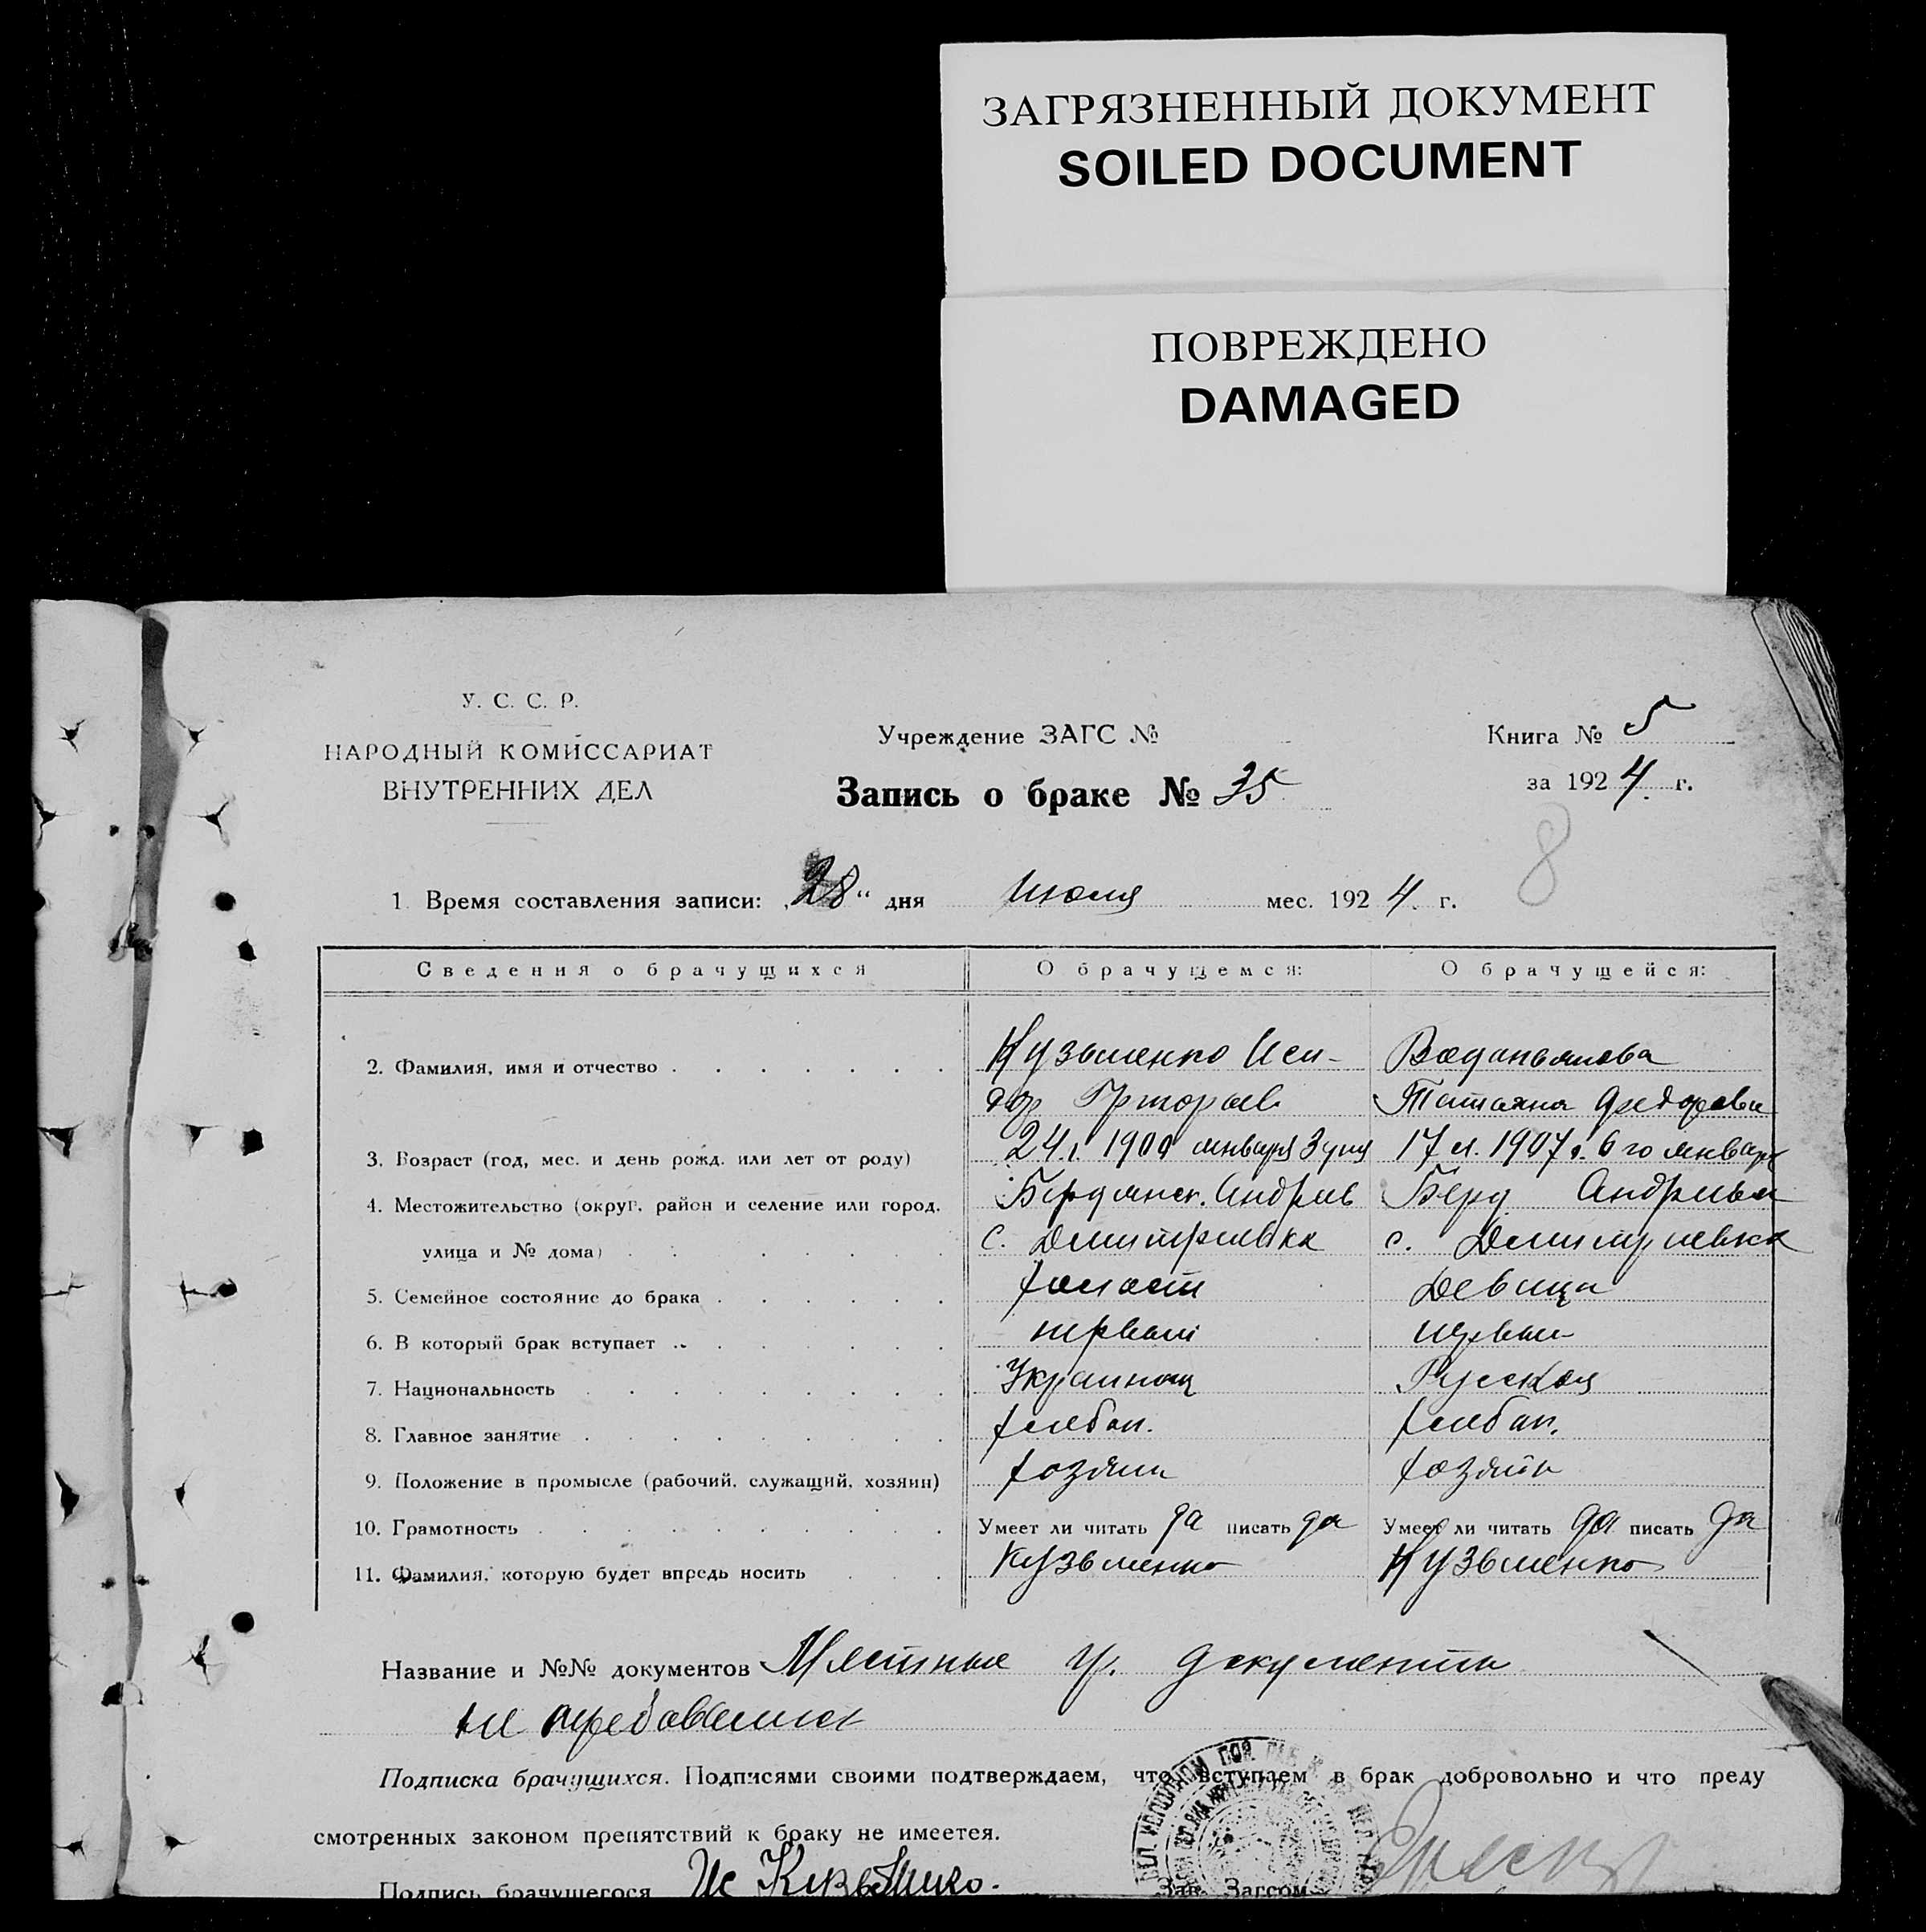 ЗАГРЯЗНЕННЫЙ ДОКУМЕНТ
SOILED DOCUMENT
ПОВРЕЖДЕНО
DAMAGED
У. С. С. Р.
НАРОДНЫЙ КОМИССАРИАТ
ВНУТРЕННИХ ДЕЛ
Учреждение ЗАГС №
Запись о браке № 35
Книга № 5
за 1924 г.
8
1. Время составления записи: „28“ дня июля мес. 1924. г.
Сведения о брачущихся О брачущемся: О брачущейся:
2. Фамилия, имя и отчество Кузьменко Иси-
дор Григорьев Татьяна Федоровна
3. Возраст (год, мес. и день рожд. или лет от роду) 24 г. 1900 января 3 дня 17 л. 1907 г. 6 го января
4. Местожительство (округ, район и селение или город, Бердянск. Андреев Берд Андреев
улица и № дома) с. Дмитриевка с. Дмитриевка
5. Семейное состояние до брака холост девица
6. В который брак вступает первый первый
7. Национальность Украинец Русская
8. Главное занятие хлебоп. хлебоп.
9. Положение в промысле (рабочий, служащий, хозяин) хозяин хозяин
10. Грамотность Умеет ли читать да писать да Умеет ли читать да писать да
11. Фамилия, которую будет впредь носить Кузьменко Кузьменко
Название и №№ документов Местные гр. документы
не требовались
Подписка брачущихся. Подписями своими подтверждаем, что вступаем в брак добровольно и что преду
смотренных законом препятствий к браку не имеется.
Подпись брачущегося Ис Кузьменко.
Зав. Загсом